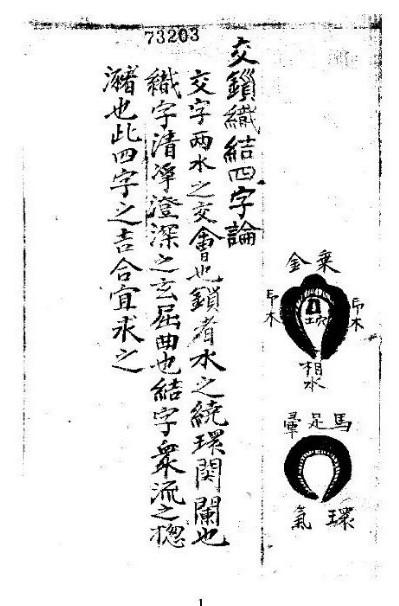 73203
乘金
印木
印木
穴土
相水
馬足暈
環氣
交鎖織結四字論
交字兩水之交會也鎖者水之繞環関闌也
織字清淨澄深之玄屈曲也結字衆流之揔
瀦也此四字之吉合宜求之
1